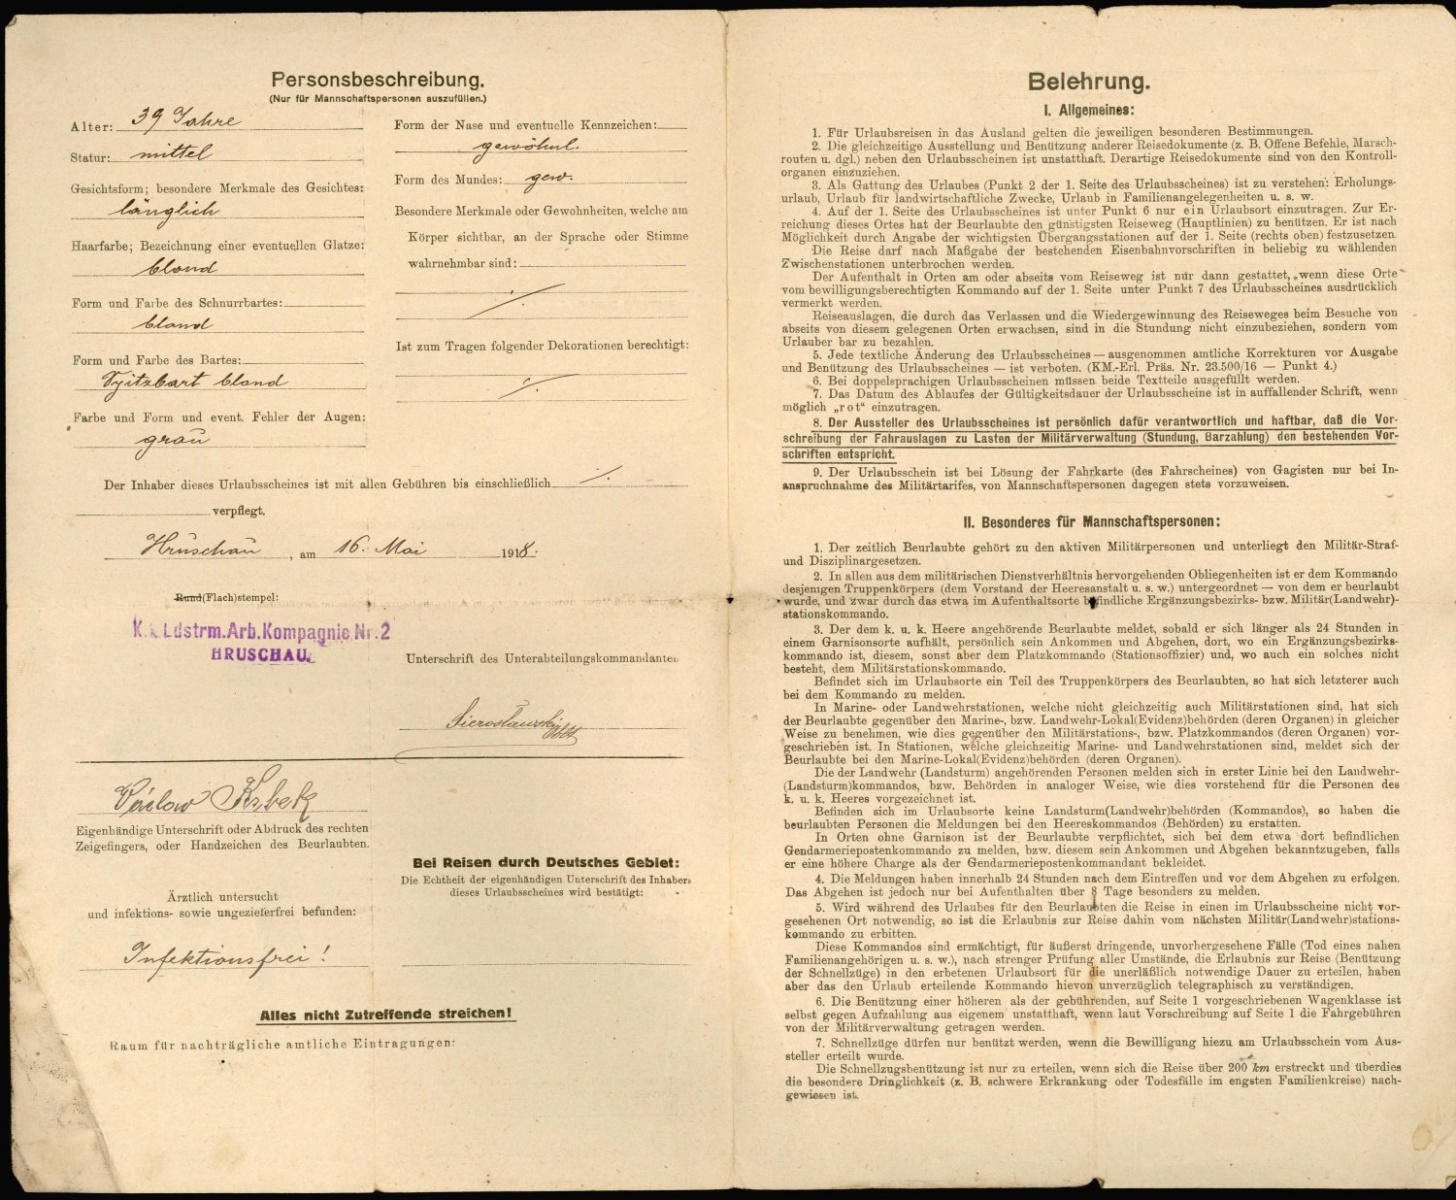 Personsbeschreibung.
(Nur für Mannschaftspersonen auszufüllen.)
Alter: 39 Jahre
Statur: mittel
Gesichtsform; besondere Merkmale des Gesichtes:
länglich
Haarfarbe; Bezeichnung einer eventuellen Glatze:
blond
Form und Farbe des Schnurrbartes:
blond
Form und Farbe des Bartes:
Spitzbart blond
Farbe und Form und event. Fehler der Augen:
grau
Form der Nase und eventuelle Kennzeichen:
gewöhnl.
Form des Mundes: gew.
Besondere Merkmale oder Gewohnheiten, welche am
Körper sichtbar, an der Sprache oder Stimme
wahrnehmbar sind:
./.
Ist zum Tragen folgender Dekorationen berechtigt:
./.
Der Inhaber dieses Urlaubsscheines ist mit allen Gebühren bis einschließlich ./.
verpflegt.
Hruschau, am 16. Mai 1918.
Rund(Flach)stempel:
K. k. Ldstrm. Arb. Kompagnie Nr. 2
HRUSCHAU.
Unterschrift des Unterabteilungskommandanten
Eigenhändige Unterschrift oder Abdruck des rechten
Zeigefingers, oder Handzeichen des Beurlaubten.
Ärztlich untersucht
und infektions- sowie ungezieferfrei befunden:
Infektionsfrei!
Bei Reisen durch Deutsches Gebiet:
Die Echtheit der eigenhändigen Unterschrift des Inhabers
dieses Urlaubsscheines wird bestätigt:
Alles nicht Zutreffende streichen!
Raum für nachträgliche amtliche Eintragungen:
Belehrung.
I. Allgemeines:
1. Für Urlaubsreisen in das Ausland gelten die jeweiligen besonderen Bestimmungen.
2. Die gleichzeitige Ausstellung und Benützung anderer Reisedokumente (z. B. Offene Befehle, Marsch-
routen u. dgl.) neben den Urlaubsscheinen ist unstatthaft. Derartige Reisedokumente sind von den Kontroll-
organen einzuziehen.
3. Als Gattung des Urlaubes (Punkt 2 der 1. Seite des Urlaubsscheines) ist zu verstehen: Erholungs-
urlaub, Urlaub für landwirtschaftliche Zwecke, Urlaub in Familienangelegenheiten u. s. w.
4. Auf der 1. Seite des Urlaubsscheines ist unter Punkt 6 nur ein Urlaubsort einzutragen. Zur Er-
reichung dieses Ortes hat der Beurlaubte den günstigsten Reiseweg (Hauptlinien) zu benützen. Er ist nach
Möglichkeit durch Angabe der wichtigsten Übergangsstationen auf der 1. Seite (rechts oben) festzusetzen.
Die Reise darf nach Maßgabe der bestehenden Eisenbahnvorschriften in beliebig zu wählenden
Zwischenstationen unterbrochen werden.
Der Aufenthalt in Orten am oder abseits vom Reiseweg ist nur dann gestattet, wenn diese Orte
vom bewilligungsberechtigten Kommando auf der 1. Seite unter Punkt 7 des Urlaubsscheines ausdrücklich
vermerkt werden.
Reiseauslagen, die durch das Verlassen und die Wiedergewinnung des Reiseweges beim Besuche von
abseits von diesem gelegenen Orten erwachsen, sind in die Stundung nicht einzubeziehen, sondern vom
Urlauber bar zu bezahlen.
5. Jede textliche Änderung des Urlaubsscheines — ausgenommen amtliche Korrekturen vor Ausgabe
und Benützung des Urlaubsscheines — ist verboten. (KM.-Erl. Präs. Nr. 23.500/16 — Punkt 4.)
6. Bei doppelsprachigen Urlaubsscheinen müssen beide Textteile ausgefüllt werden.
7. Das Datum des Ablaufes der Gültigkeitsdauer der Urlaubsscheine ist in auffallender Schrift, wenn
möglich „rot“ einzutragen.
8. Der Aussteller des Urlaubsscheines ist persönlich dafür verantwortlich und haftbar, daß die Vor-
schreibung der Fahrauslagen zu Lasten der Militärverwaltung (Stundung, Barzahlung) den bestehenden Vor-
schriften entspricht.
9. Der Urlaubsschein ist bei Lösung der Fahrkarte (des Fahrscheines) von Gagisten nur bei In-
anspruchnahme des Militärtarifes, von Mannschaftspersonen dagegen stets vorzuweisen.
II. Besonderes für Mannschaftspersonen:
1. Der zeitlich Beurlaubte gehört zu den aktiven Militärpersonen und unterliegt den Militär-Straf-
und Disziplinargesetzen.
2. In allen aus dem militärischen Dienstverhältnis hervorgehenden Obliegenheiten ist er dem Kommando
desjenigen Truppenkörpers (dem Vorstand der Heeresanstalt u. s. w.) untergeordnet — von dem er beurlaubt
wurde, und zwar durch das etwa im Aufenthaltsorte befindliche Ergänzungsbezirks- bzw. Militär(Landwehr)-
stationskommando.
3. Der dem k. u. k. Heere angehörende Beurlaubte meldet, sobald er sich länger als 24 Stunden in
einem Garnisonsorte aufhält, persönlich sein Ankommen und Abgehen, dort, wo ein Ergänzungsbezirks-
kommando ist, diesem, sonst aber dem Platzkommando (Stationsoffizier) und, wo auch ein solches nicht
besteht, dem Militärstationskommando.
Befindet sich im Urlaubsorte ein Teil des Truppenkörpers des Beurlaubten, so hat sich letzterer auch
bei dem Kommando zu melden.
In Marine- oder Landwehrstationen, welche nicht gleichzeitig auch Militärstationen sind, hat sich
der Beurlaubte gegenüber den Marine-, bzw. Landwehr-Lokal(Evidenz)behörden (deren Organen) in gleicher
Weise zu benehmen, wie dies gegenüber den Militärstations-, bzw. Platzkommandos (deren Organen) vor-
geschrieben ist. In Stationen, welche gleichzeitig Marine- und Landwehrstationen sind, meldet sich der
Beurlaubte bei den Marine-Lokal(Evidenz)behörden (deren Organen).
Die der Landwehr (Landsturm) angehörenden Personen melden sich in erster Linie bei den Landwehr-
(Landsturm)kommandos, bzw. Behörden in analoger Weise, wie dies vorstehend für die Personen des
k. u. k. Heeres vorgezeichnet ist.
Befinden sich im Urlaubsorte keine Landsturm(Landwehr)behörden (Kommandos), so haben die
beurlaubten Personen die Meldungen bei den Heereskommandos (Behörden) zu erstatten.
In Orten ohne Garnison ist der Beurlaubte verpflichtet, sich bei dem etwa dort befindlichen
Gendarmeriepostenkommando zu melden, bzw. diesem sein Ankommen und Abgehen bekanntzugeben, falls
er eine höhere Charge als der Gendarmeriepostenkommandant bekleidet.
4. Die Meldungen haben innerhalb 24 Stunden nach dem Eintreffen und vor dem Abgehen zu erfolgen.
Das Abgehen ist jedoch nur bei Aufenthalten über 8 Tage besonders zu melden.
5. Wird während des Urlaubes für den Beurlaubten die Reise in einen im Urlaubsscheine nicht vor-
gesehenen Ort notwendig, so ist die Erlaubnis zur Reise dahin vom nächsten Militär(Landwehr)stations-
kommando zu erbitten.
Diese Kommandos sind ermächtigt, für äußerst dringende, unvorhergesehene Fälle (Tod eines nahen
Familienangehörigen u. s. w.), nach strenger Prüfung aller Umstände, die Erlaubnis zur Reise (Benützung
der Schnellzüge) in den erbetenen Urlaubsort für die unerläßlich notwendige Dauer zu erteilen, haben
aber das den Urlaub erteilende Kommando hievon unverzüglich telegraphisch zu verständigen.
6. Die Benützung einer höheren als der gebührenden, auf Seite 1 vorgeschriebenen Wagenklasse ist
selbst gegen Aufzahlung aus eigenem unstatthaft, wenn laut Vorschreibung auf Seite 1 die Fahrgebühren
von der Militärverwaltung getragen werden.
7. Schnellzüge dürfen nur benützt werden, wenn die Bewilligung hiezu am Urlaubsschein vom Aus-
steller erteilt wurde.
Die Schnellzugsbenützung ist nur zu erteilen, wenn sich die Reise über 200 km erstreckt und überdies
die besondere Dringlichkeit (z. B. schwere Erkrankung oder Todesfälle im engsten Familienkreise) nach-
gewiesen ist.